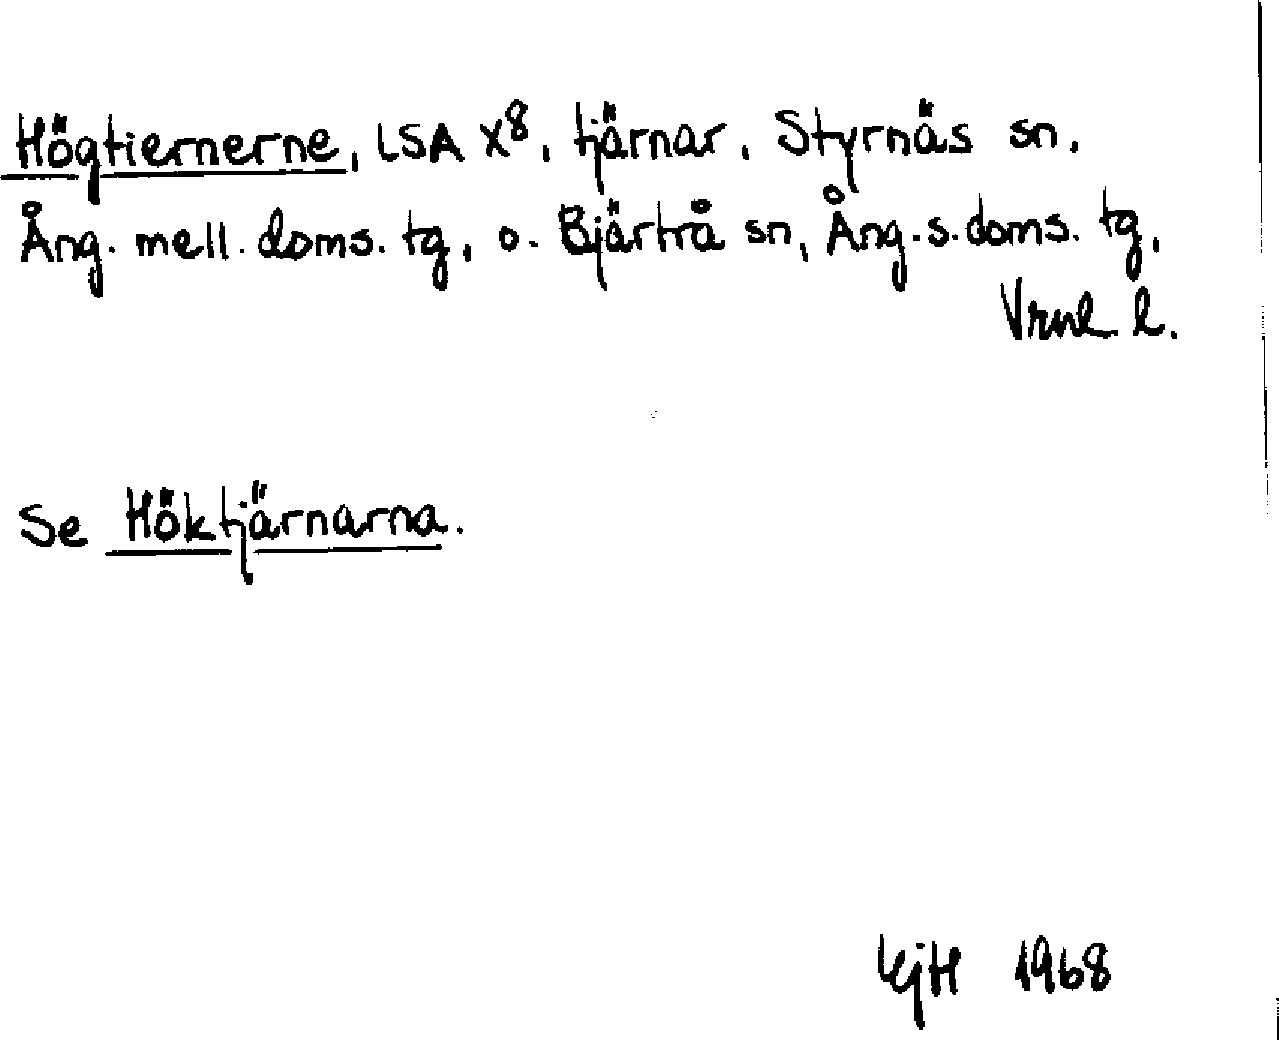 Högtiernerne, LSA X8, tjärnar, Styrnäs sn,
Ång. mell. doms. tg, o. Bjärtrå sn, Ång. s. doms. tg,
Vrnl l.
Se Höktjärnarna.
KjH 1968